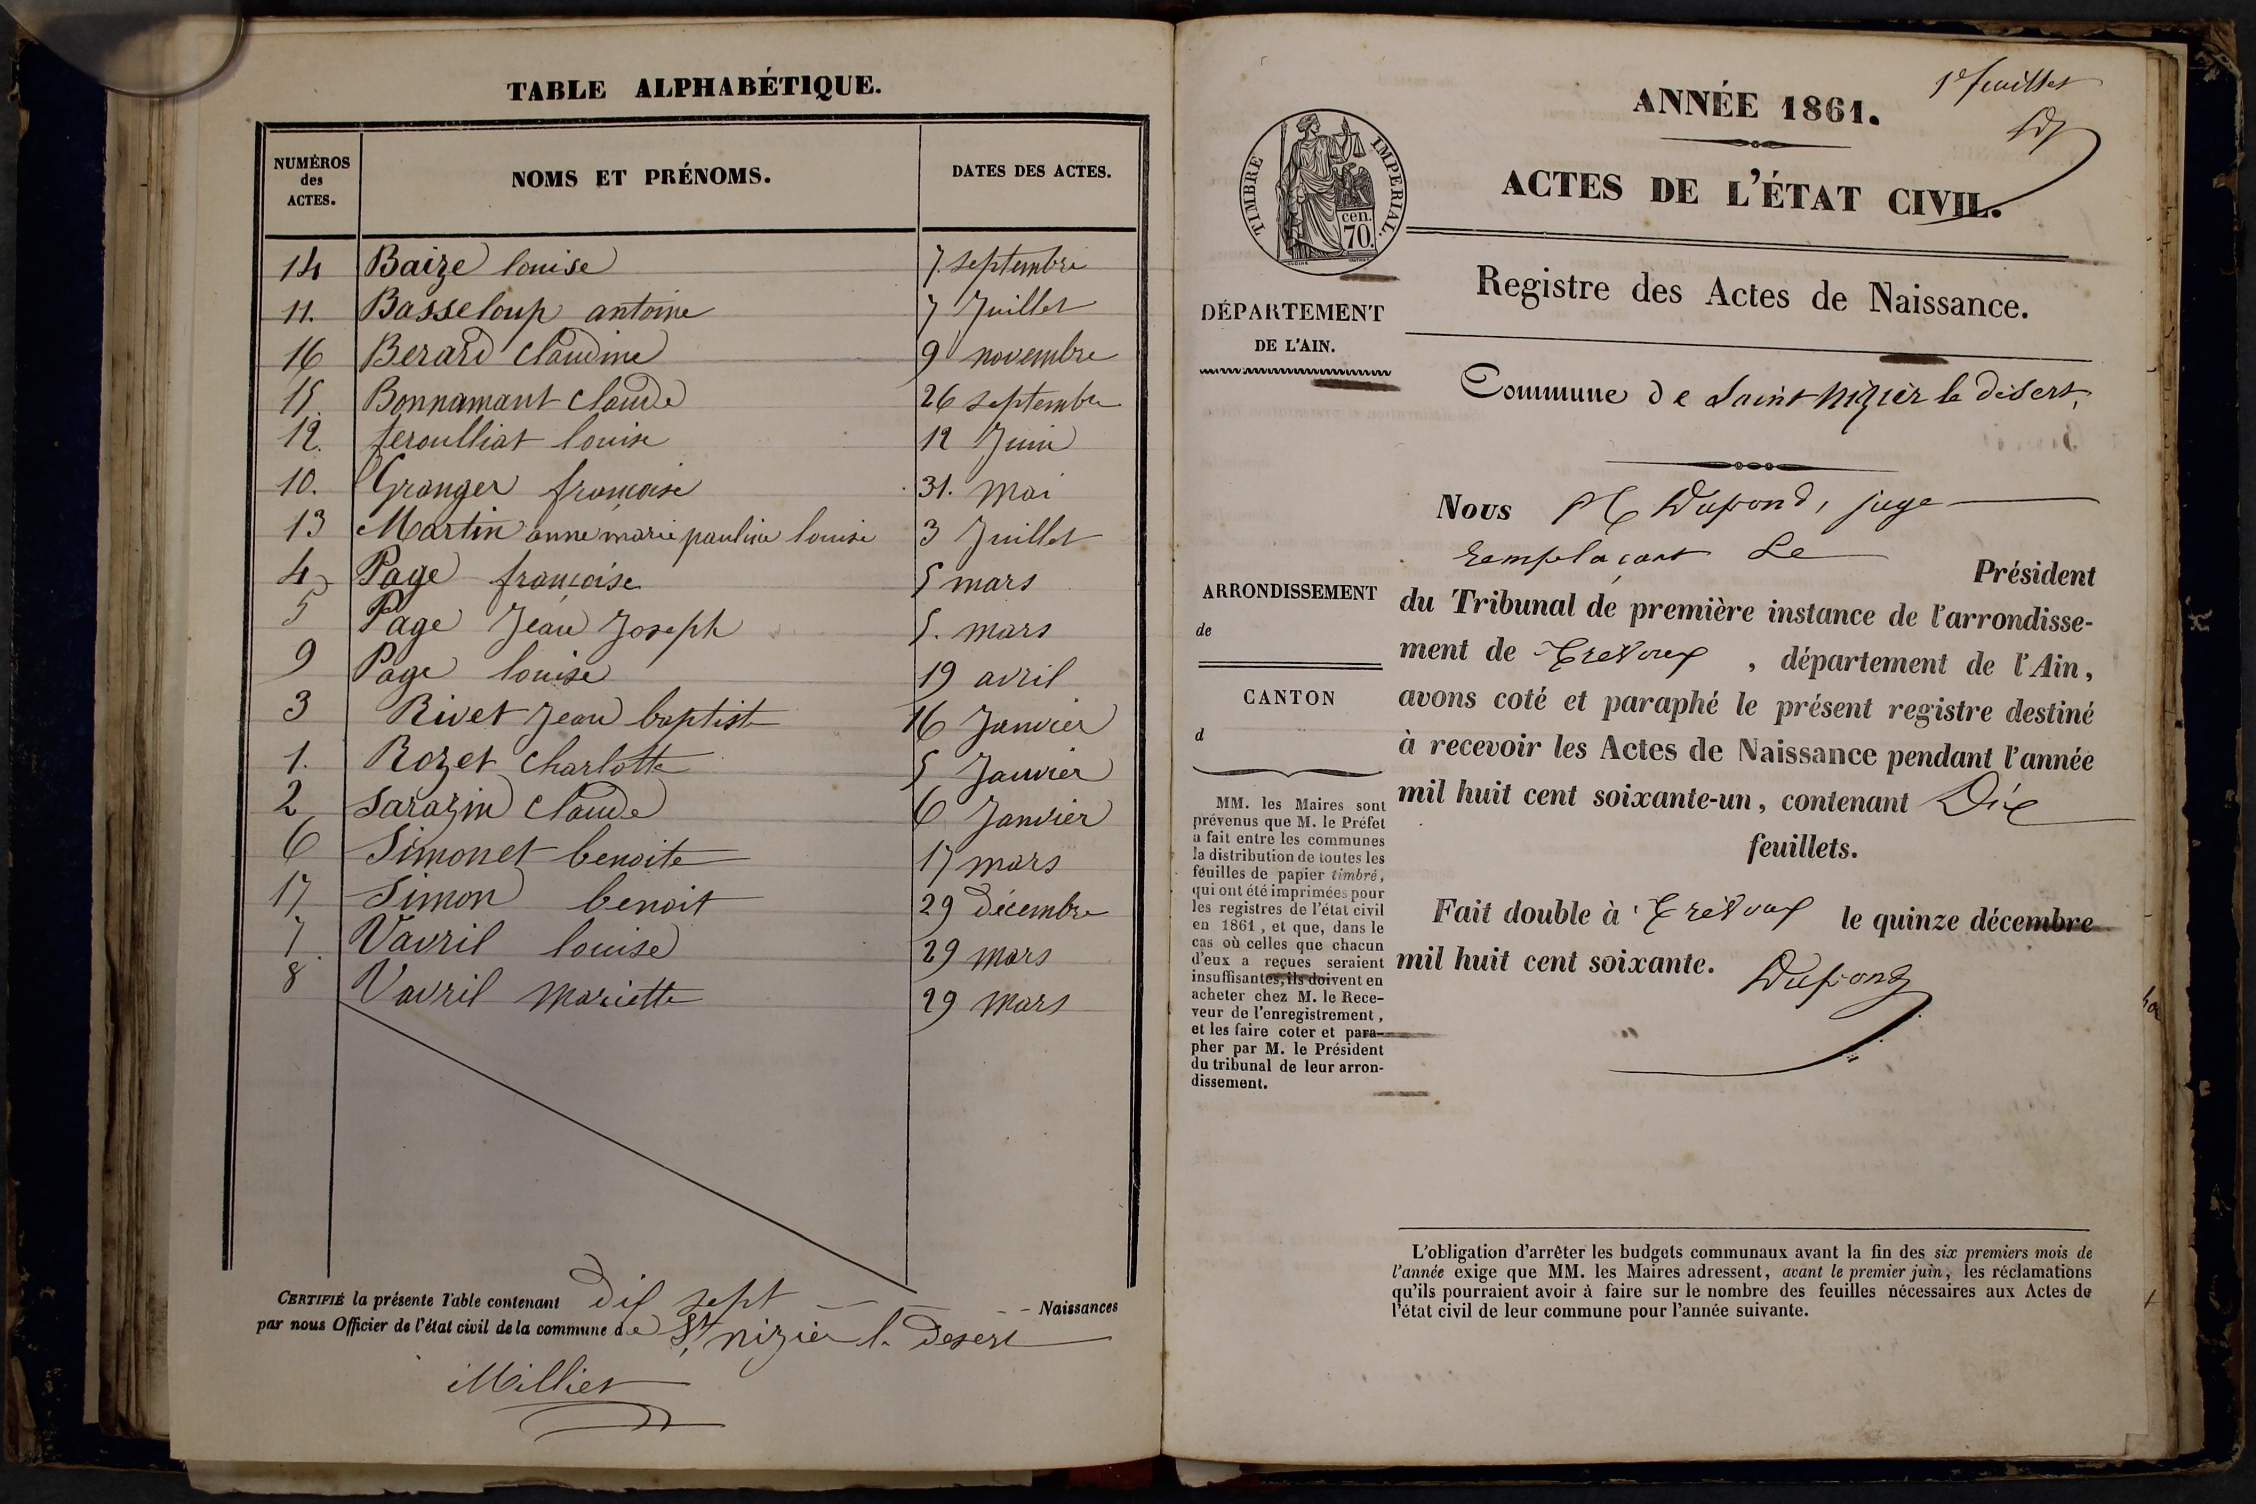 TABLE ALPHABÉTIQUE.
NUMÉROS des ACTES. NOMS ET PRÉNOMS. DATES DES ACTES.
14 Baize louise 7. septembre
11. Basseloup antoine 7 Juillet
16 Berard Claudine 9 novembre
15. Bonnamant Claude 26 septembre
12. feroulliat louise 12 Juin
10. Granger françoise 31. Mai
13 Martin anne marie pauline louise 3 Juillet
4 Page françoise 5 mars
5 Page Jean Joseph 5. mars
9 Page louise 19 avril
3 Rivet Jean baptist 16 Janvier
1. Rozet Charlotte 5 Janvier
2 Sarazin Claude 6 Janvier
6 Simonet benoite 17 mars
17 Simon benoit 29 décembre
7. Vavril louise 29 mars
8 Vavril Mariette 29 mars
CERTIFIÉ la présente Table contenant dix sept Naissances
par nous Officier de l'état civil de la commune de St. nizier le Desert
Milliet
1e feuillet
ANNÉE 1861.
ACTES DE L'ÉTAT CIVIL.
TIMBRE IMPERIAL.
cen.
70.
Registre des Actes de Naissance.
DÉPARTEMENT
DE L'AIN.
Commune de Saint Nizier le désert,
Nous Dupond, juge
remplaçant Le Président
du Tribunal de première instance de l'arrondisse-
ment de Trevoux, département de l'Ain,
avons coté et paraphé le présent registre destiné
à recevoir les Actes de Naissance pendant l'année
mil huit cent soixante-un, contenant Dix
feuillets.
Fait double à Trevoux le quinze décembre
mil huit cent soixante.
Dupond
ARRONDISSEMENT
de
CANTON
d
MM. les Maires sont
prévenus que M. le Préfet
a fait entre les communes
la distribution de toutes les
feuilles de papier timbré,
qui ont été imprimées pour
les registres de l'état civil
en 1861, et que, dans le
cas où celles que chacun
d'eux a reçues seraient
insuffisantes, ils doivent en
acheter chez M. le Rece-
veur de l'enregistrement,
et les faire coter et para-
pher par M. le Président
du tribunal de leur arron-
dissement.
L'obligation d'arrêter les budgets communaux avant la fin des six premiers mois de
l'année exige que MM. les Maires adressent, avant le premier juin, les réclamations
qu'ils pourraient avoir à faire sur le nombre des feuilles nécessaires aux Actes de
l'état civil de leur commune pour l'année suivante.